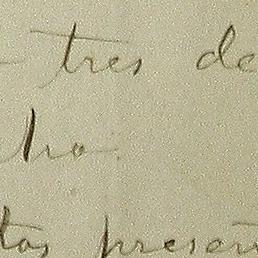 tres de
tas presen